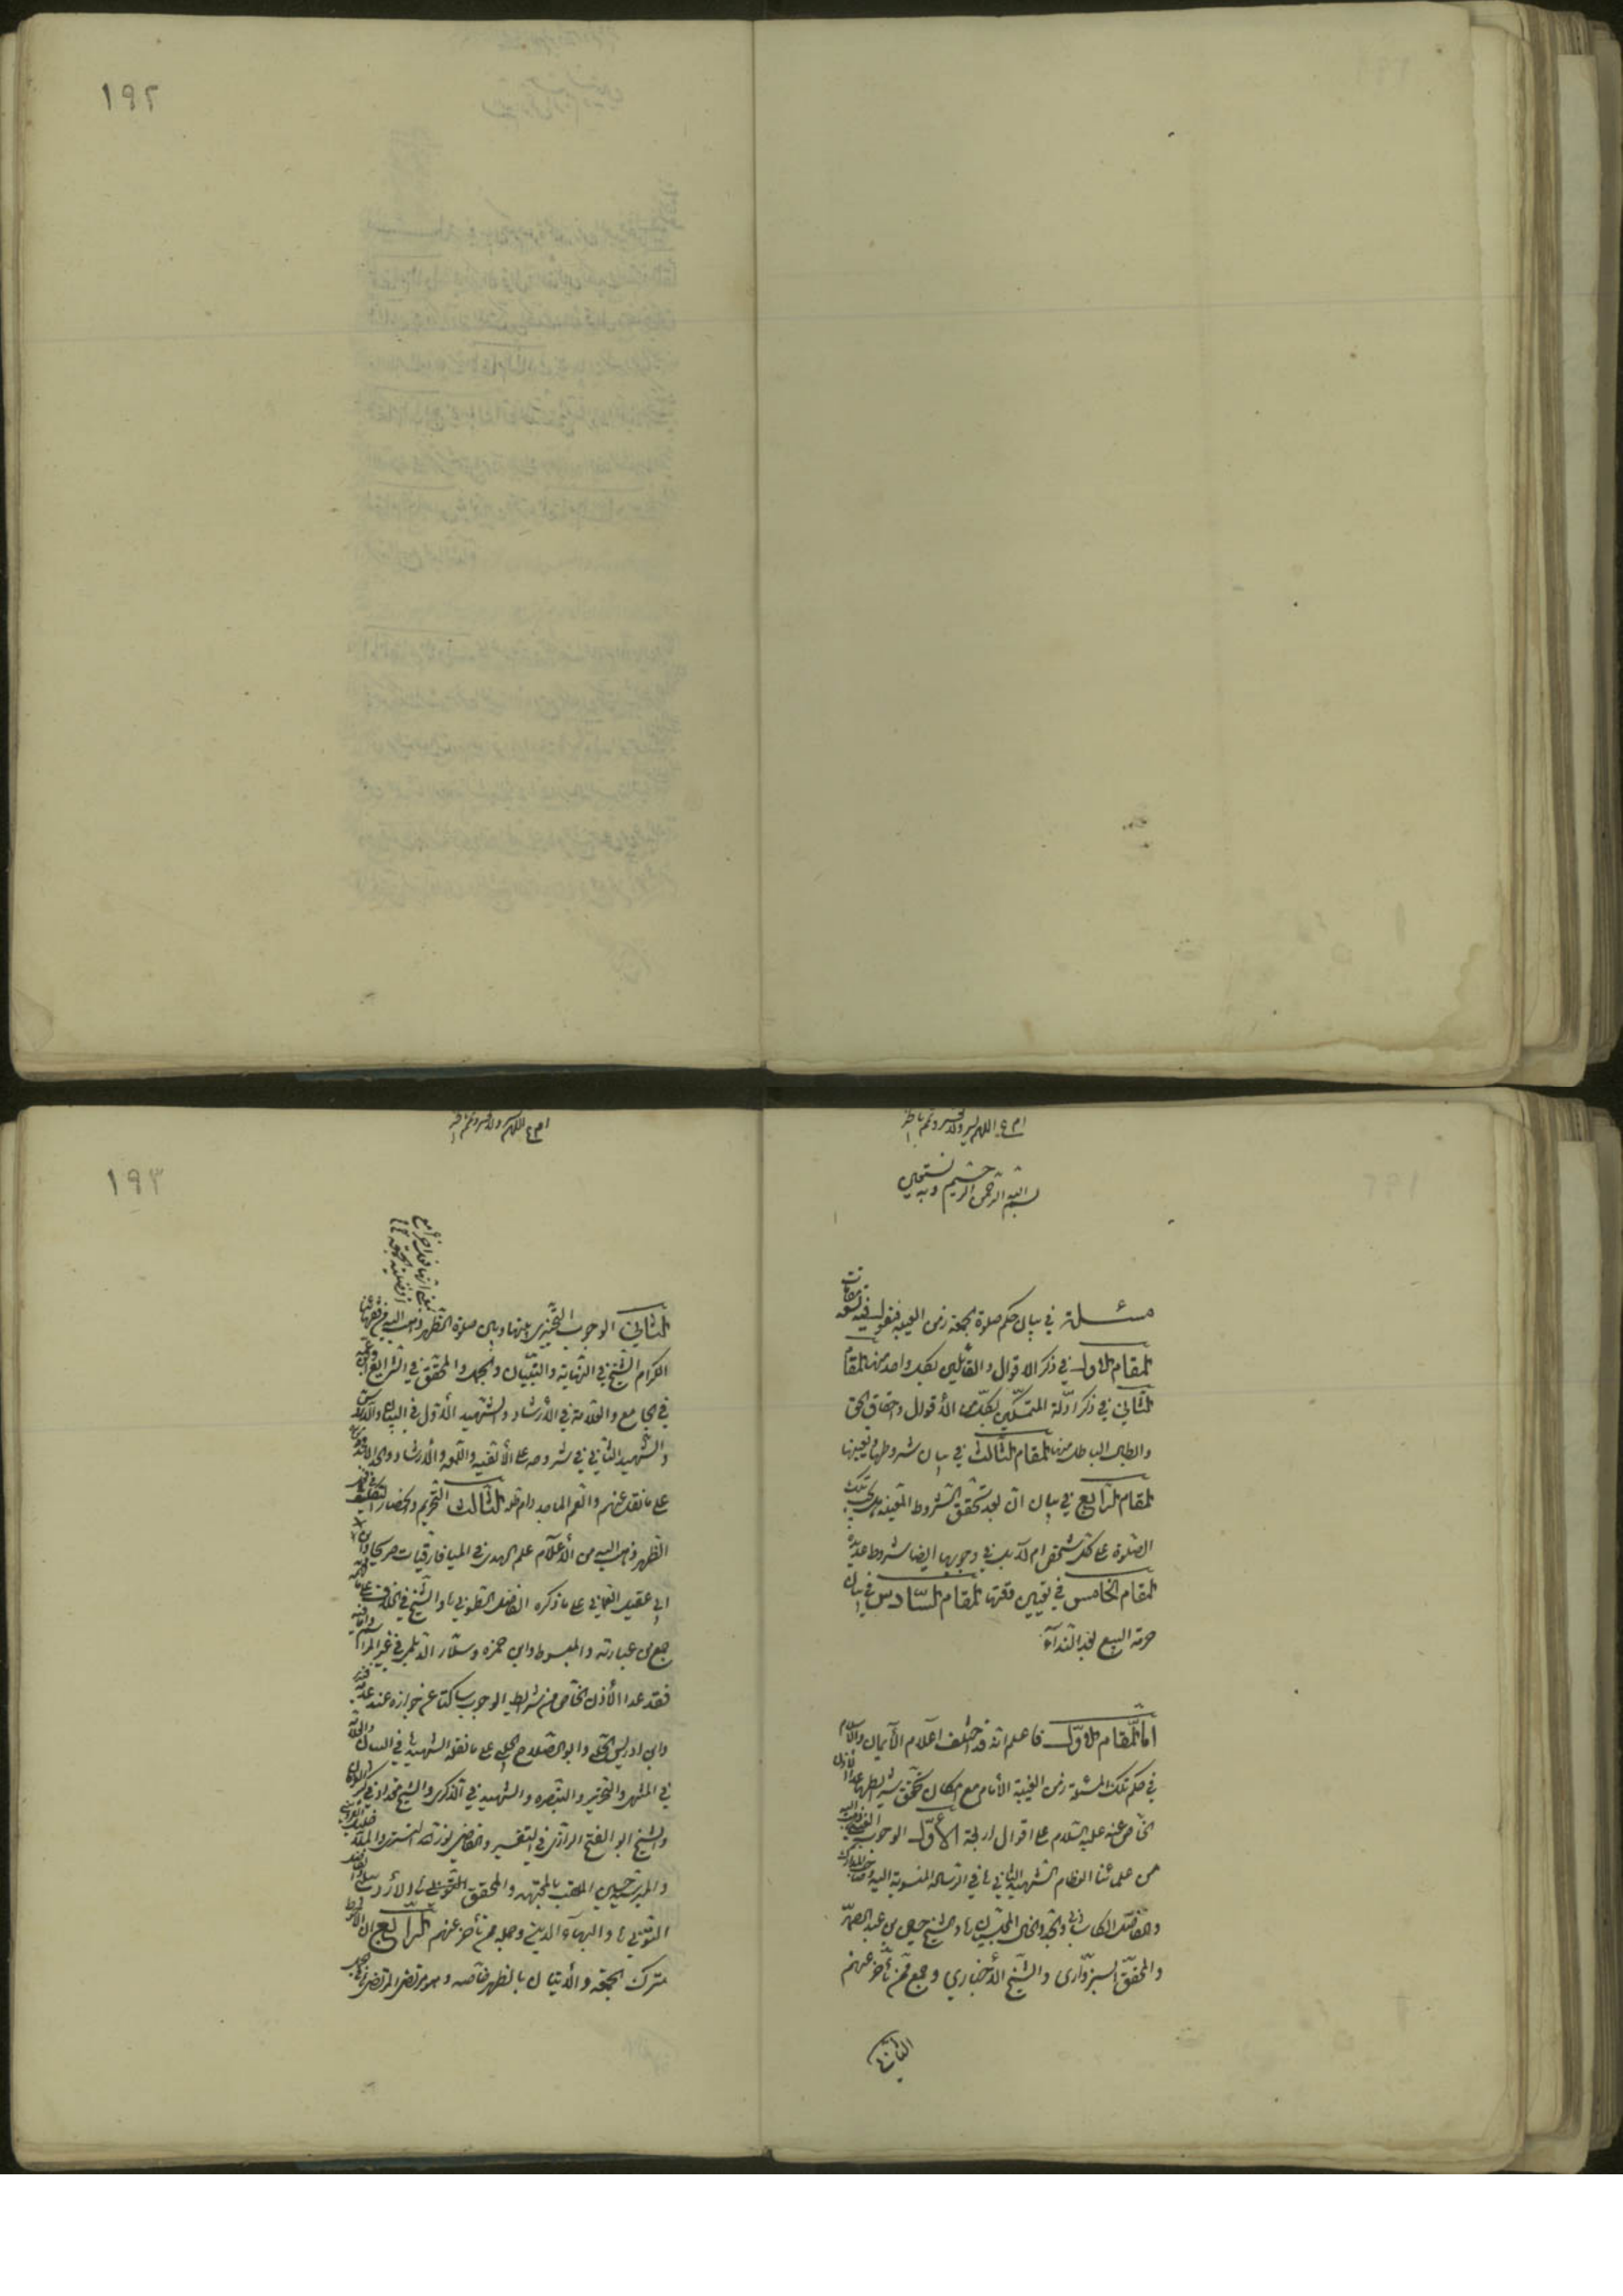 ١٩٢
بسم الله الرحمن الرحيم وبه نستعين
مسئلة في بيان حكم صلوة الجمعة زمن الغيبة فنقول فيه مقامات
المقام الاول في ذكر الاقوال والقائلين بكل واحد منها المقام
الثاني في ذكر ادلة المتمسكين بكل من الأقوال واحقاق الحق
وابطال الباطل منها المقام الثالث في بيان شروطها وتعيينها
المقام الرابع في بيان ان بعد تحقق الشروط المعينة هل يجب تلك
الصلوة على كل شخص ام لا بل في وجوبها ايضا شروط عديدة
المقام الخامس في تعيين وقتها المقام السادس في بيان
حرمة البيع بعد النداء
اما المقام الاول فاعلم انه قد اختلف اعلام الأيمان والاسلام
في حكم تلك المسئلة زمن الغيبة الأمام مع امكان تحقق شرايطها عدا الاذن
الخاص عنه عليه السلام على اقوال اربعة الأول الوجوب العيني ذهب اليه
من علمائنا العظام الشهيد الثاني في الرسالة المنسوبة اليه وصاحب المدارك
والفاضل الكاشاني والجد والخال المجلسيان والشيخ حسين بن عبد الصمد
والمحقق السبزواري والشيخ الأخباري وجمع ممن تأخر عنهم
الثاني
١٩٣
الثاني الوجوب التخييري بينها وبين صلوة الظهر ذهب اليه من فقهائنا
الكرام الشيخ في النهاية والتبيان والجمل والمحقق في الشرايع وابن عمه
في الجامع والعلامة في الأرشاد والشهيد الأول في البيان والدروس
والشهيد الثاني في شروحه على الألفية واللمعة والأرشاد
على ما نقل عنهم والعم الماجد دام ظله الثالث التحريم وانحصار التكليف في
الظهر ذهب اليه من الأعلام علم الهدى في الميافارقيات صريحا وابن
ابي عقيل العماني على ما ذكره الفاضل القطيفي والشيخ في الخلاف على ما
جمع من عبارته والمبسوط وابن حمزه وسلار الديلمي في غير المراسم
فقد عدا الأذن الخاص من شرايط الوجوب ساكتا عن جوازه عند عدمه
وابن ادريس الحلي وابو الصلاح الحلبي على ما نقله الشهيد في البيان والعلامة
في المنتهى والتحرير والتبصره والشهيد في الذكرى والشيخ مقداد في كنز العرفان
والشيخ ابو الفتح الرازي في التفسير والقاضي نور الله التستري والملا خليل القزويني
والمير سيد حسين الملقب بالمجتهد والمحقق
التوني والبهاء الدين وجملة ممن تأخر عنهم الرابع ان الأحوط
ترك الجمعة والأتيان بالظهر خاصه وهو مرتضى المرتضى